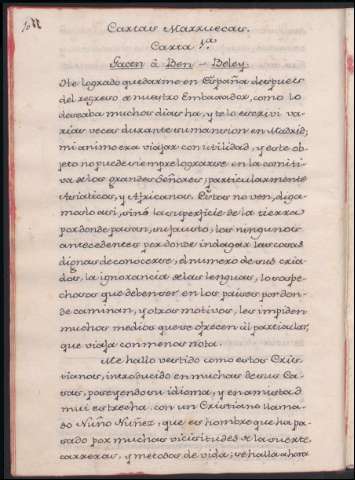 Cartas Marruecas.
Carta 1.ª
Gacel â Ben-Beley.
He logrado quedarme en España despues
del regreso de nuestro Embaxador, como lo
deseaba muchos dias ha, y te lo escrivi va-
rias veces durante su mansion en Madrid;
mi animo era viajar con utilidad, y este ob-
jeto no puede siempre lograrse en la comiti-
va de los grandes Señores, particularmente
Asiaticos, y Africanos. Estos no ven, diga-
moslo asi, sinô la superficie de la tierra
por donde pasan; su fausto, los ningunos
antecedentes por donde indagar las cosas
dignas de conocerse, el numero de sus cria-
dos, la ignorancia de las lenguas, lo sospe-
chosos que deben ser en los paises por don-
de caminan, y otros motivos, les impiden
muchos medios que se ofrecen âl particular,
que viaja con menos nota.
Me hallo vestido como estos Cris-
tianos, introducido en muchas de sus Ca-
sas, poseyendo su idioma, y en amistad
mui estrecha con un Cristiano llama-
do Nuño Nuñez, que es hombre que ha pa-
sado por muchas vicisitudes de la suerte,
carreras, y metodos de vida; se halla ahora